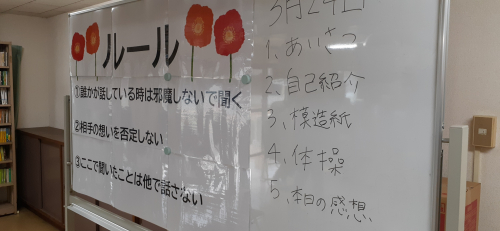 ルール
①誰かが話している時は邪魔しないで聞く
②相手の想いを否定しない
③ここで聞いたことは他で話さない
3月24日
1、あいさつ
2、自己紹介
3、模造紙
4、体操
5、本日の感想